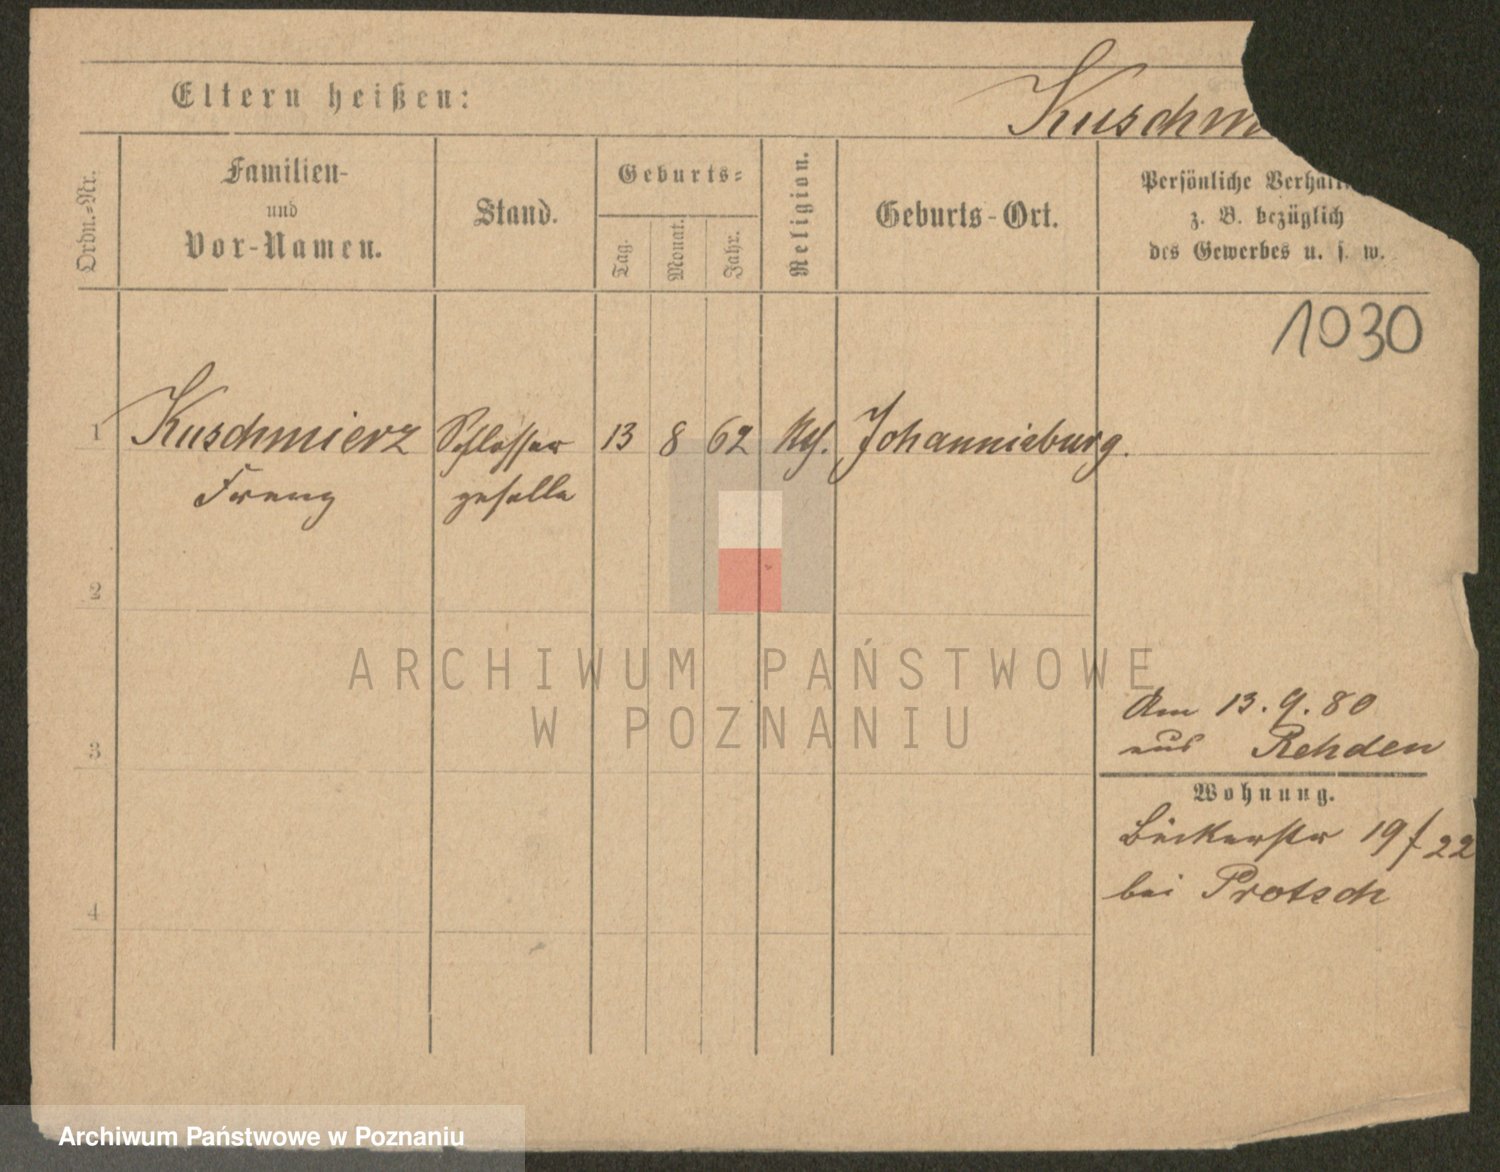 Eltern heißen:
Kuschm
Ordn.-Nr.
Familien-
und
Vor-Namen.
Stand.
Geburts-
Tag.
Monat.
Jahr.
Religion.
Geburts-Ort.
Persönliche Verhält
z. B. bezüglich
des Gewerbes u. s. w.
1030
1 Kuschmierz Schlosser 13 8 62 Johannisburg.
Franz geselle
2
3
4
Am 13. 9. 80
aus Rehden
Wohnung.
Bäckerstr 19/22
bei Protsch
ARCHIWUM PAŃSTWOWE
W POZNANIU
Archiwum Państwowe w Poznaniu